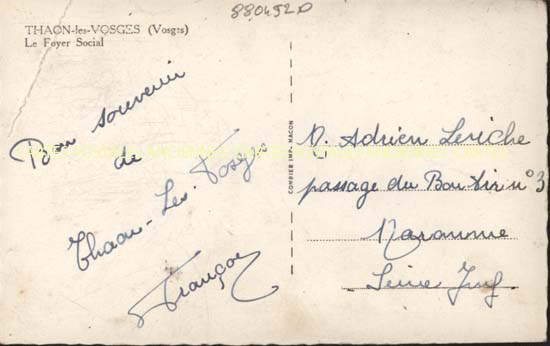 880452D
THAON-les-VOSGES (Vosges)
Le Foyer Social
Bon souvenir
de
Thaon-Les-Vosges
François
COMBIER IMP. MACON
M. Adrien Leriche
passage du Bon Air n°3
Maromme
Seine Inf